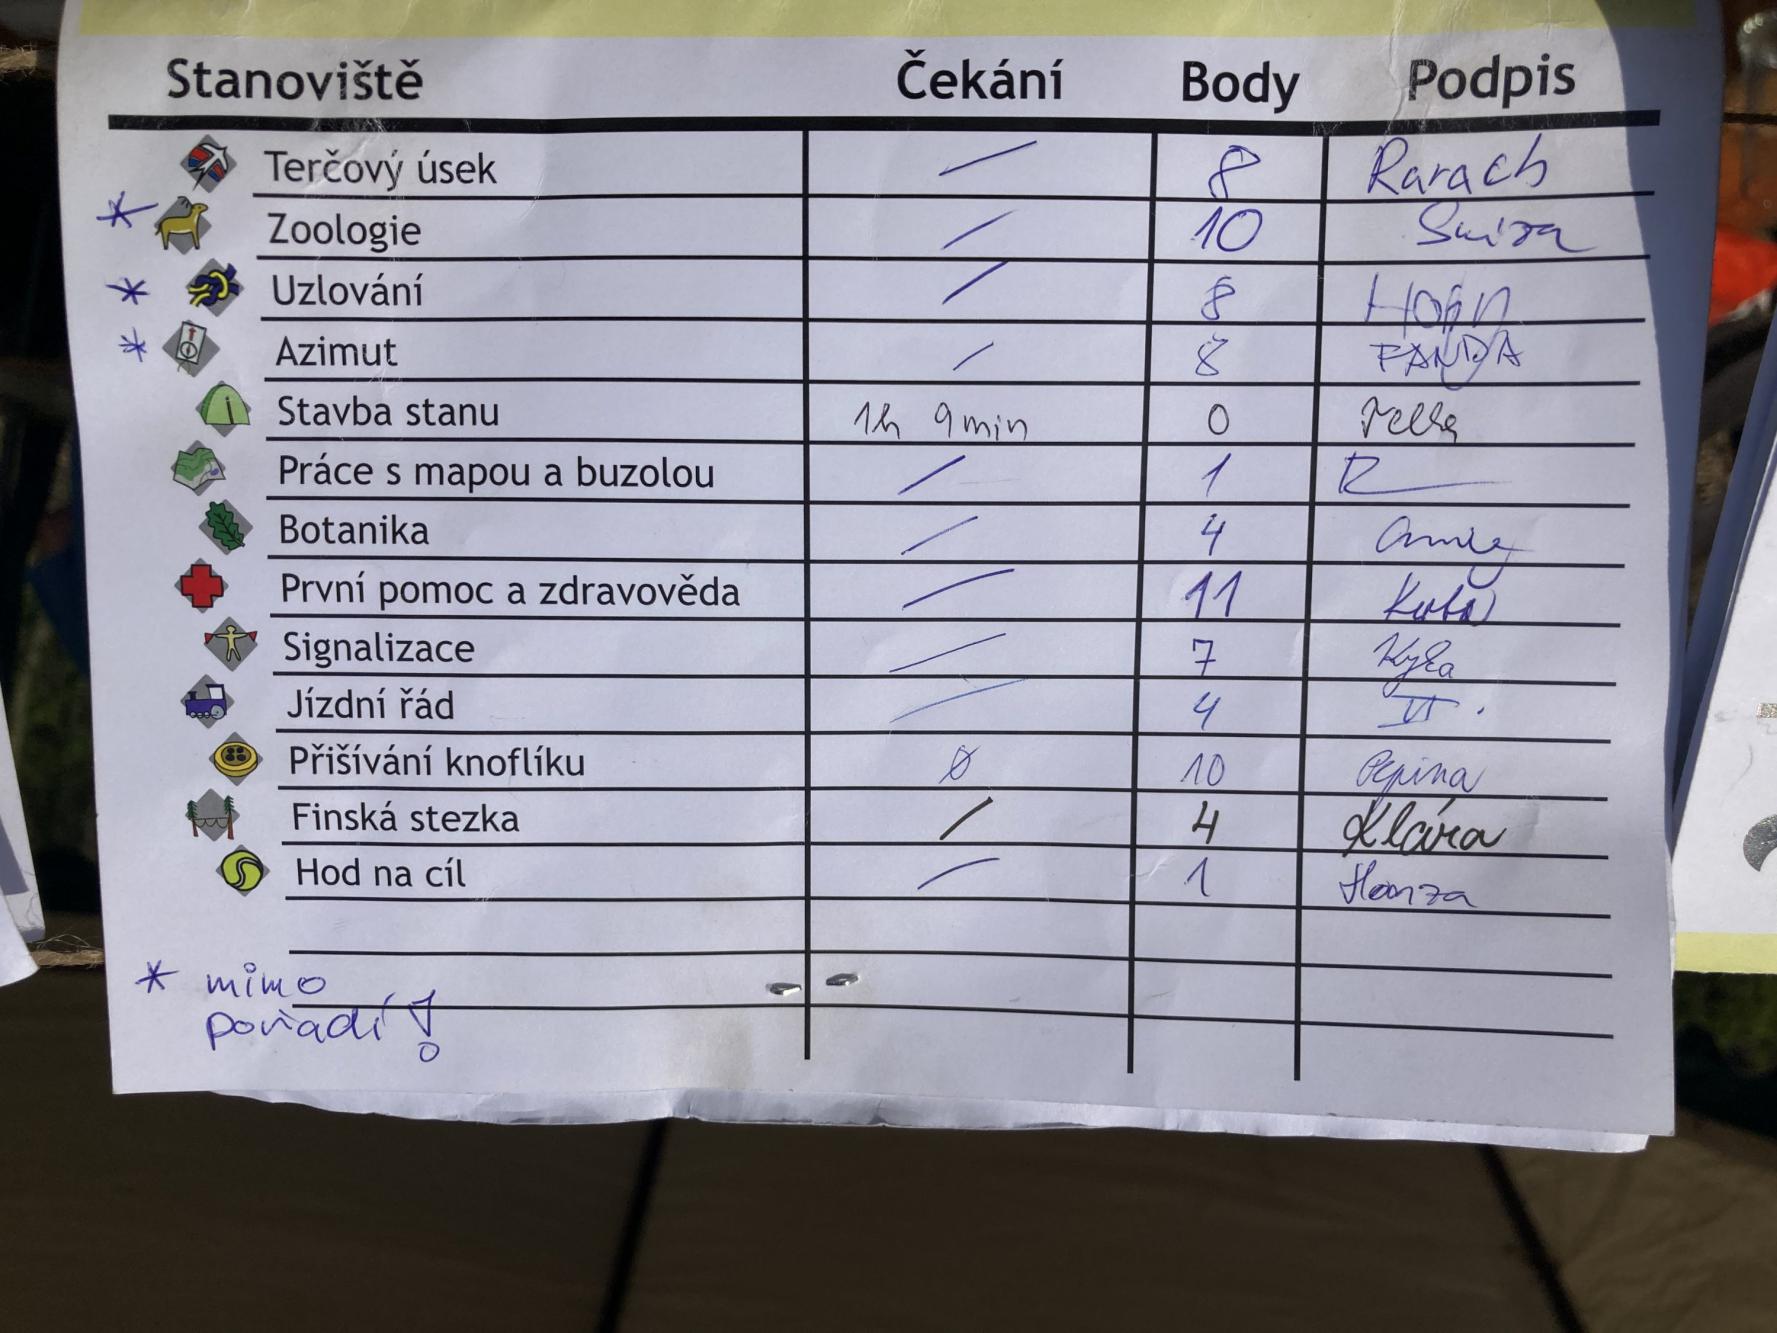 Stanoviště Čekání Body Podpis
Terčový úsek / 8 Rarach
* Zoologie / 10
* Uzlování / 8
* Azimut / 8 FANDA
Stavba stanu 1h 9min 0
Práce s mapou a buzolou / 1
Botanika / 4
První pomoc a zdravověda / 11 Kuba
Signalizace / 7
Jízdní řád / 4
Přišívání knoflíku Ø 10 Pepina
Finská stezka / 4 Klára
Hod na cíl / 1 Honza
* mimo
pořadí!